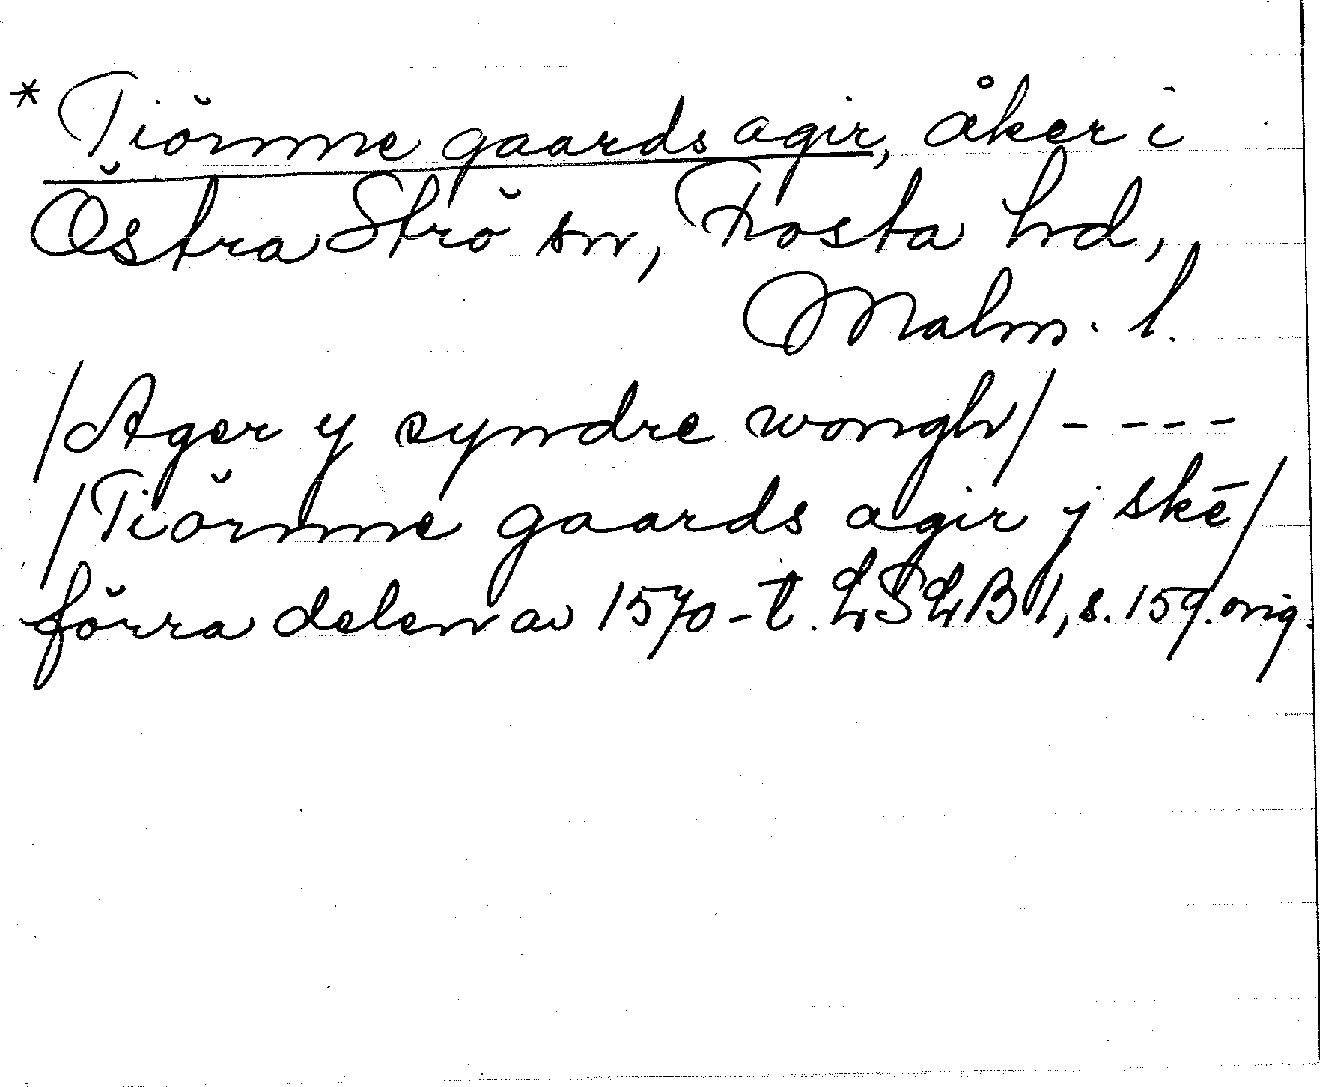 * Tiörnne gaards agir, åker i
Östra Strö sn, Frosta hd,
Malm. l.
/Ager y syndre wongh/ - - - -
/Tiörnne gaards agir y skē/
förra delen av 1570-t. LSLB 1, s. 159. orig.